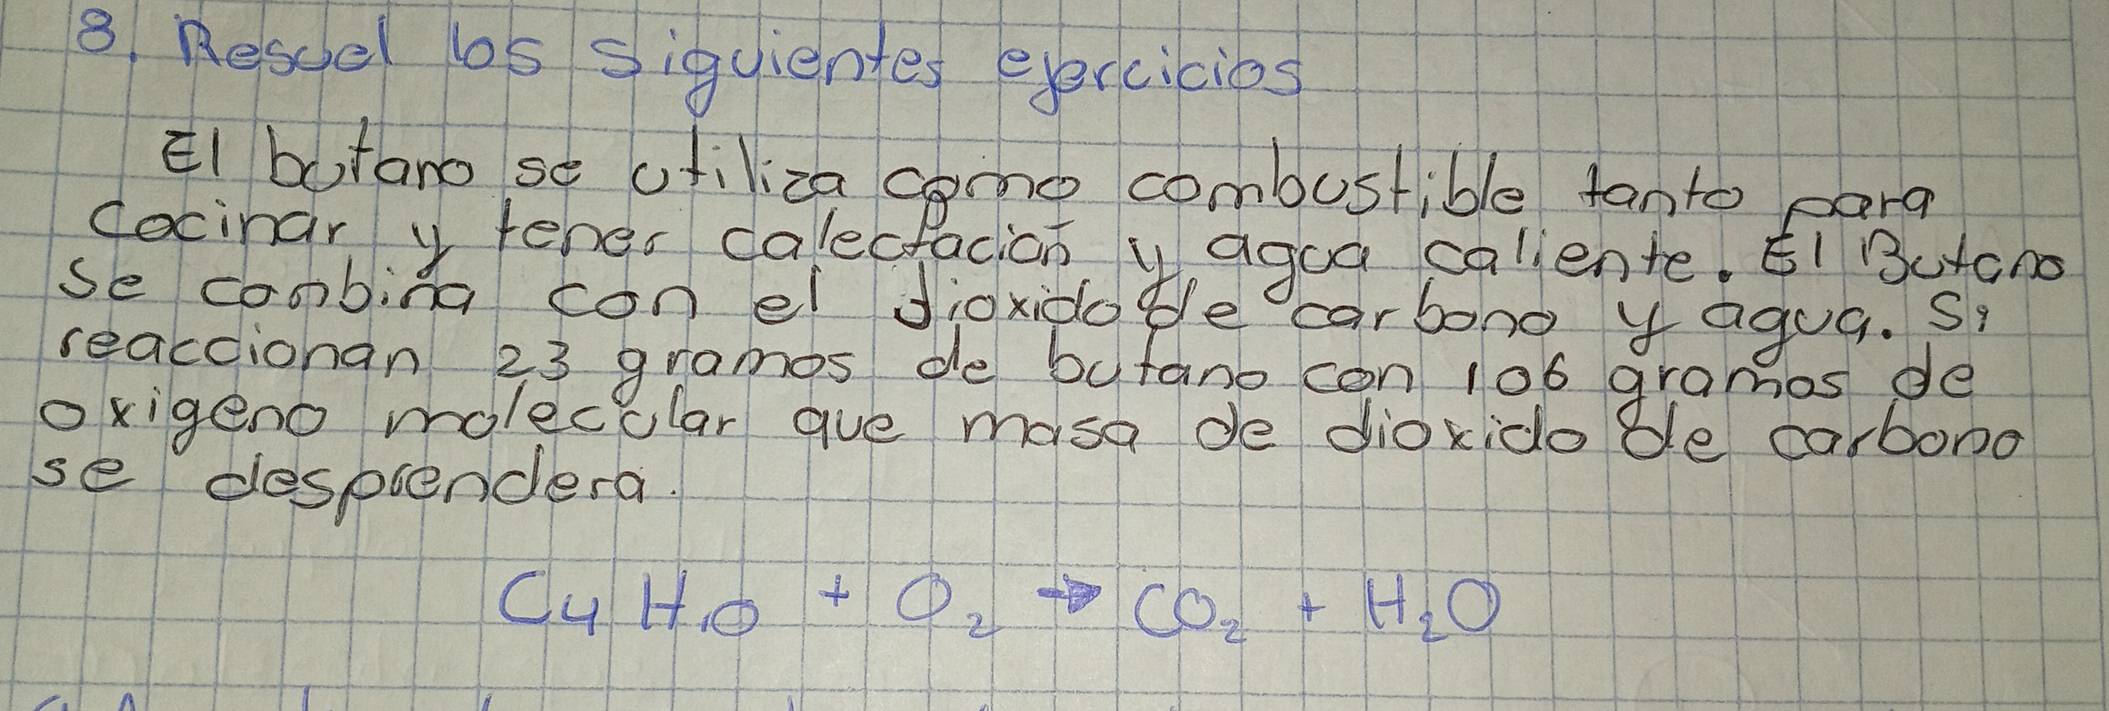 8. Resuel los siguientes ejercicios
El butano se utiliza como combustible tanto para
cocinar y tener calectacion y agua caliente. El Butano
se conbina con el dioxido de carbono y agua. Si
reaccionan 23 gramos de butano con 106 gramos de
oxigeno molecular que masa de dioxido de carbono
se desprendera.
C4 H10 + O2 → CO2 + H2O